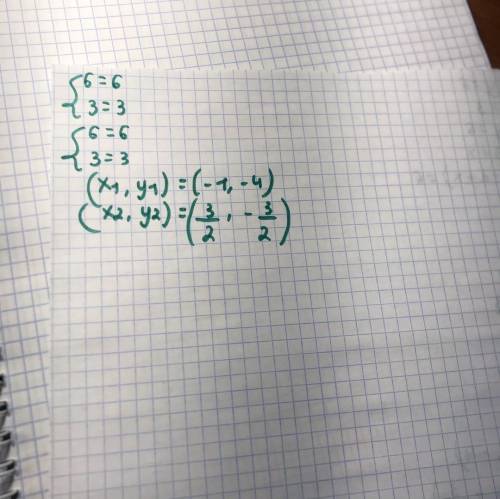 {6=6
{3=3
{6=6
{3=3
(x1, y1) = (-1, -4)
(x2, y2) = (3/2, -3/2)